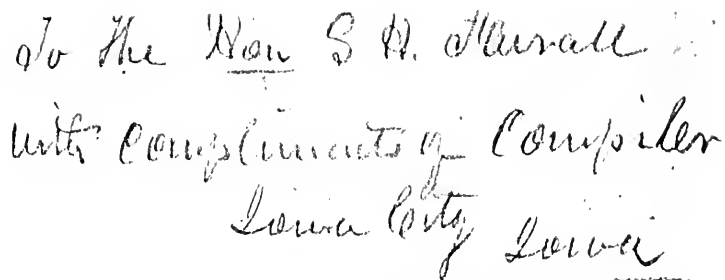 To The Hon S H. Fairall
with compliments of Compiler
Iowa City Iowa